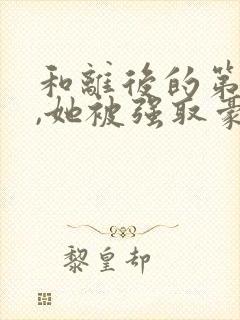 和離後的第
,她被强取豪
黎皇却